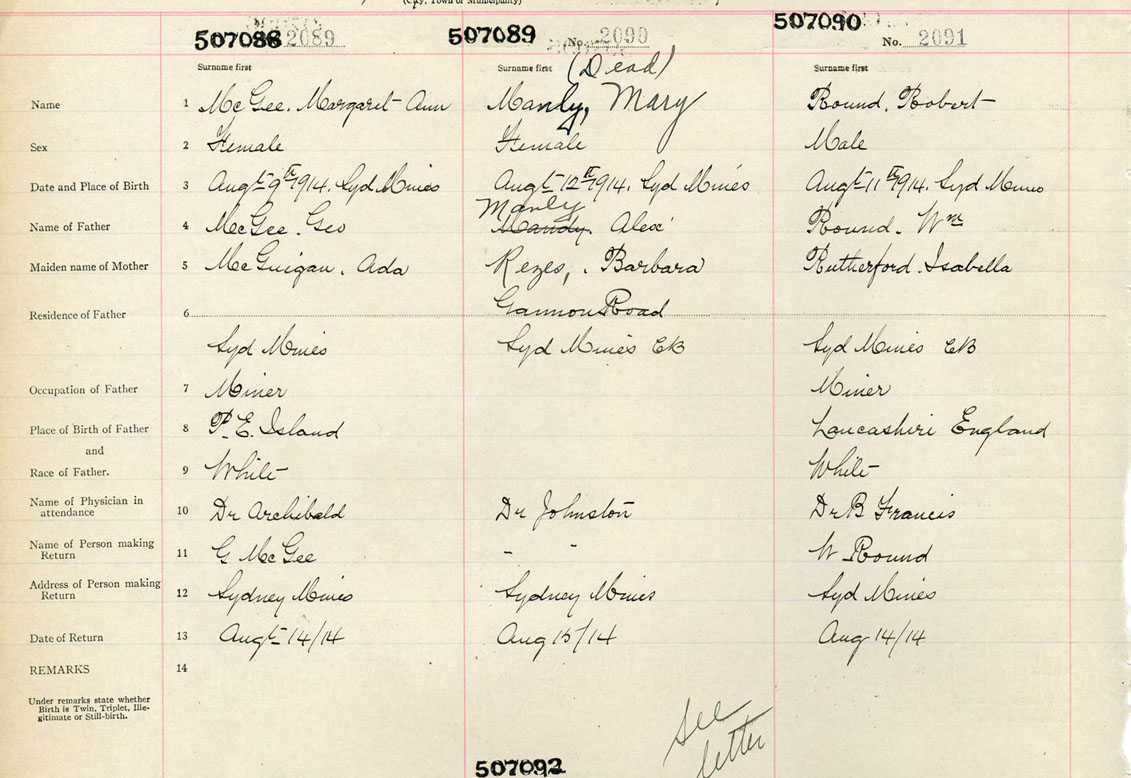 (City, Town or Municipality)
507088 2089 507089 No. 2090 507090 No. 2091
Surname first Surname first (Dead) Surname first
Name 1 McGee. Margaret Ann Manly, Mary Round. Robert
Sex 2 Female Female Male
Date and Place of Birth 3 Augt 9th 1914. Syd Mines Augt 12th 1914. Syd Mines Augt 11th 1914. Syd Mines
Manly
Name of Father 4 McGee. Geo Mandy. Alex Round. Wm
Maiden name of Mother 5 McGuigan. Ada Rezes, . Barbara Rutherford. Isabella
Residence of Father 6 Gannon Road
Syd Mines Syd Mines CB Syd Mines CB
Occupation of Father 7 Miner Miner
Place of Birth of Father 8 P. E. Island Lancashire England
and
Race of Father. 9 White White
Name of Physician in
attendance 10 Dr Archibald Dr Johnston Dr B Francis
Name of Person making
Return 11 G McGee - - W Round
Address of Person making
Return 12 Sydney Mines Sydney Mines Syd Mines
Date of Return 13 Augt 14/14 Aug 15/14 Aug 14/14
REMARKS 14
Under remarks state whether
Birth is Twin, Triplet, Ille-
gitimate or Still-birth.
See
letter
507092